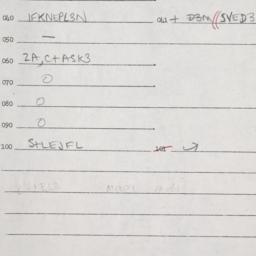 040 IFKNEPL3N 041 + D3M//SVED3
050 —
060 2A,C+ASK3
070 0
080 0
090 0
100 S+LEJFL 101